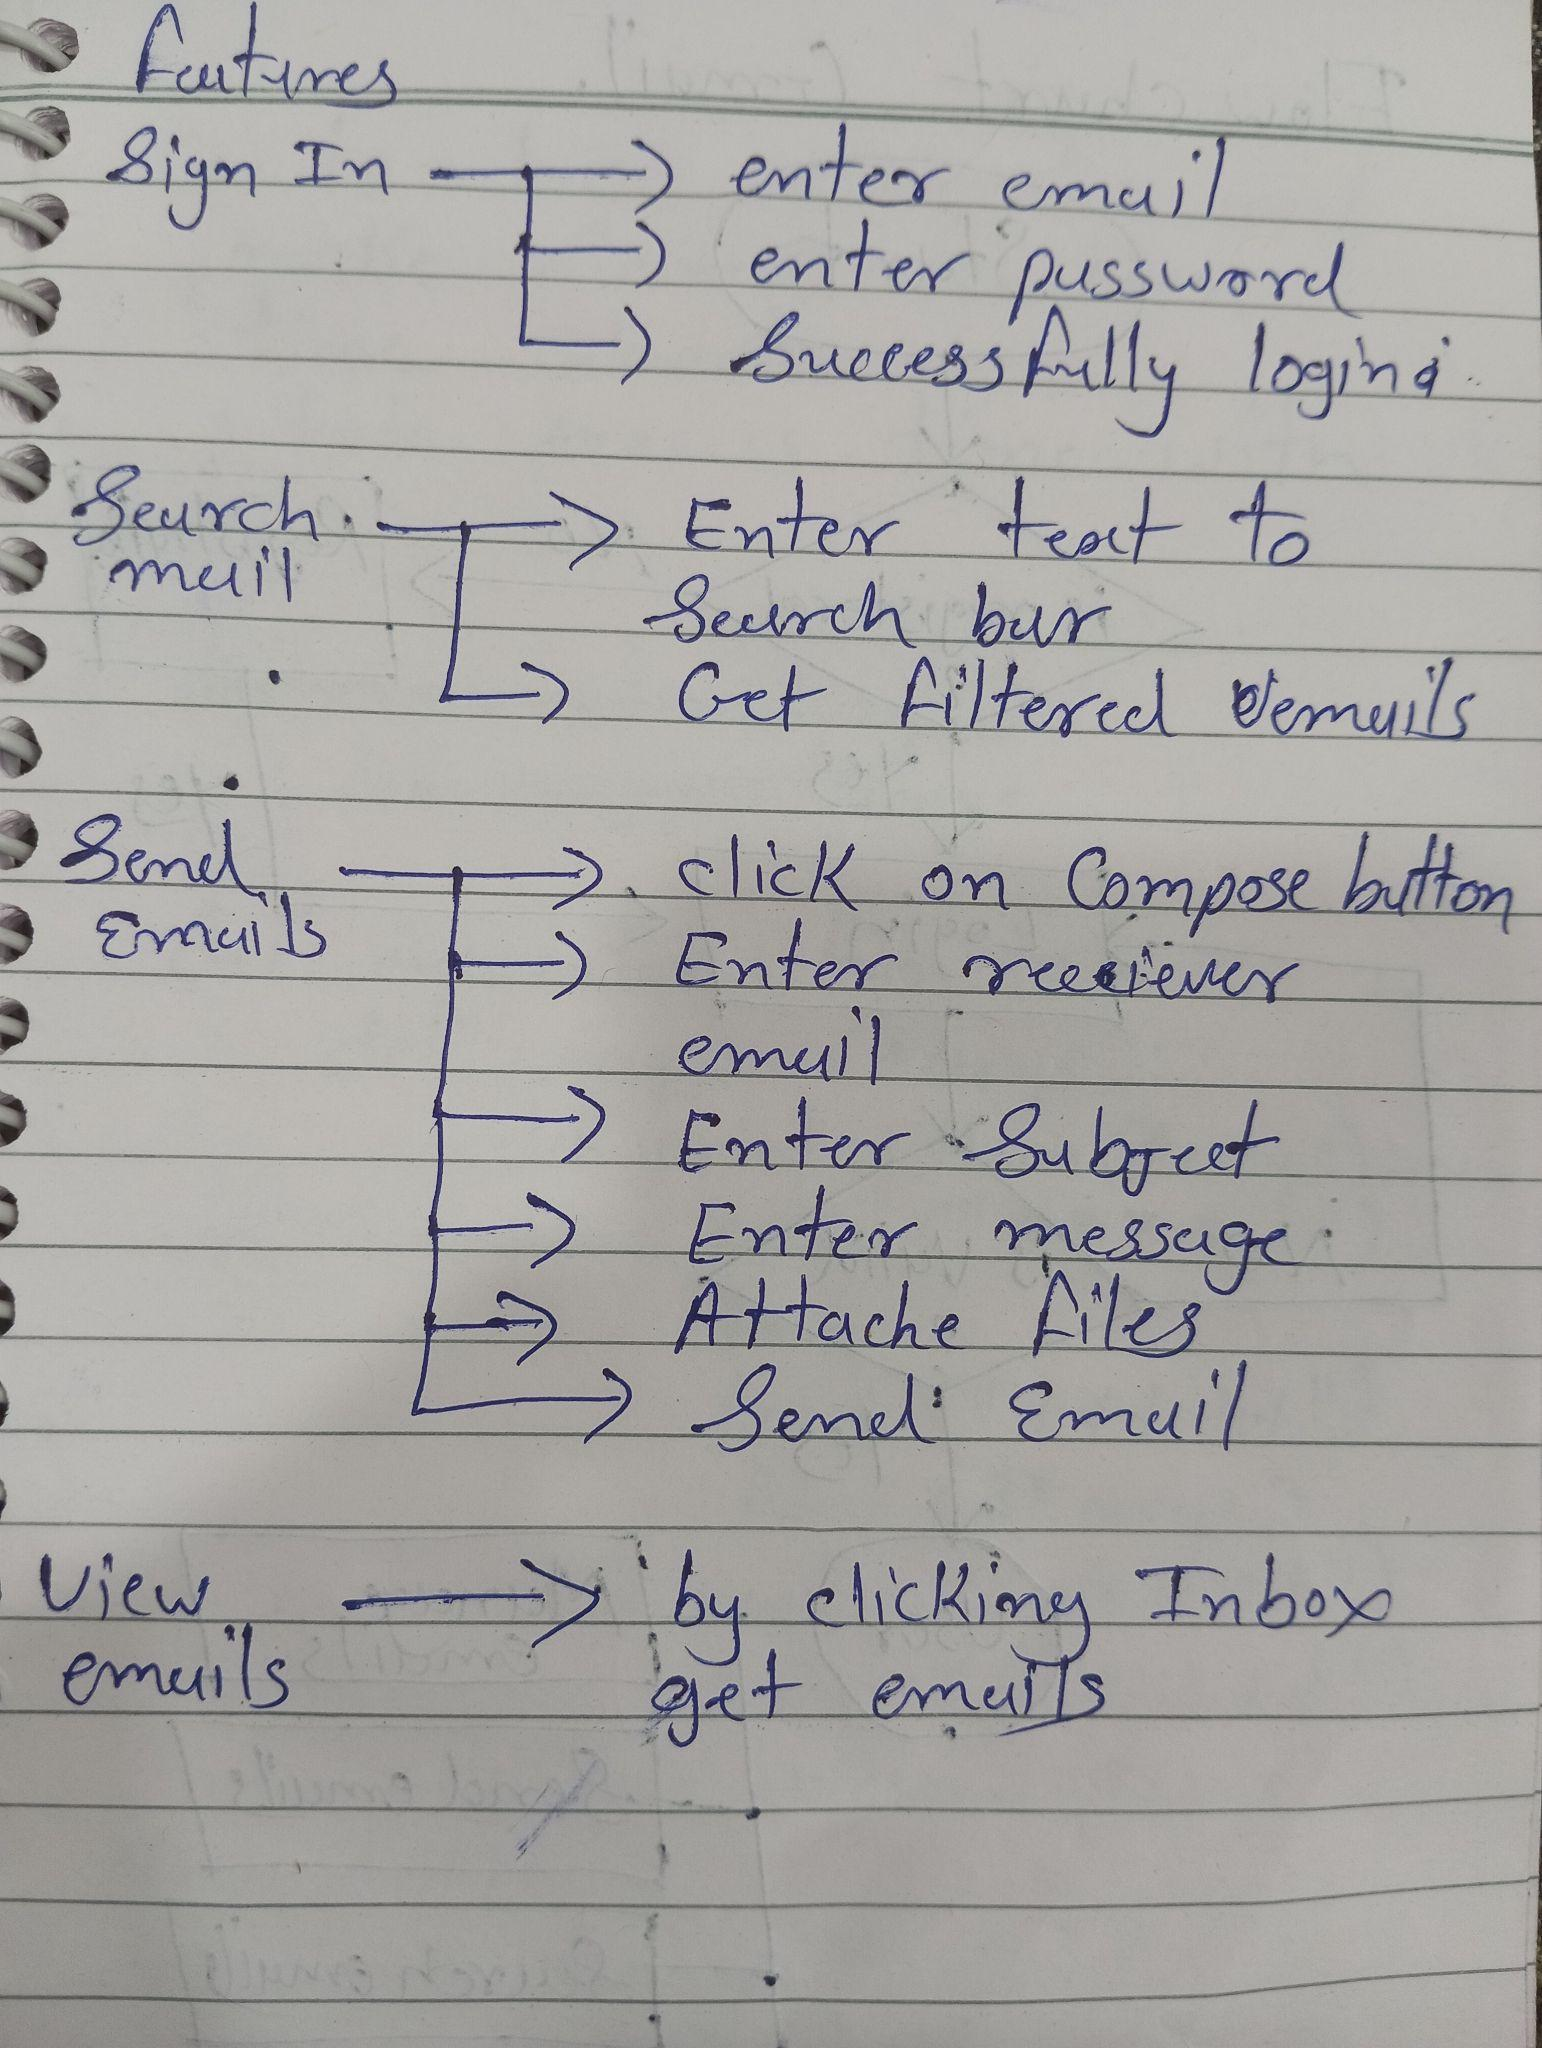 Features
Sign In → enter email
→ enter password
→ Successfully login
Search → Enter text to
mail
Search bar
→ Get filtered emails
Send → click on Compose button
Emails → Enter reeciever
email
→ Enter Subject
→ Enter message
→ Attache files
→ Send Email
View → by clicking Inbox
emails get emails